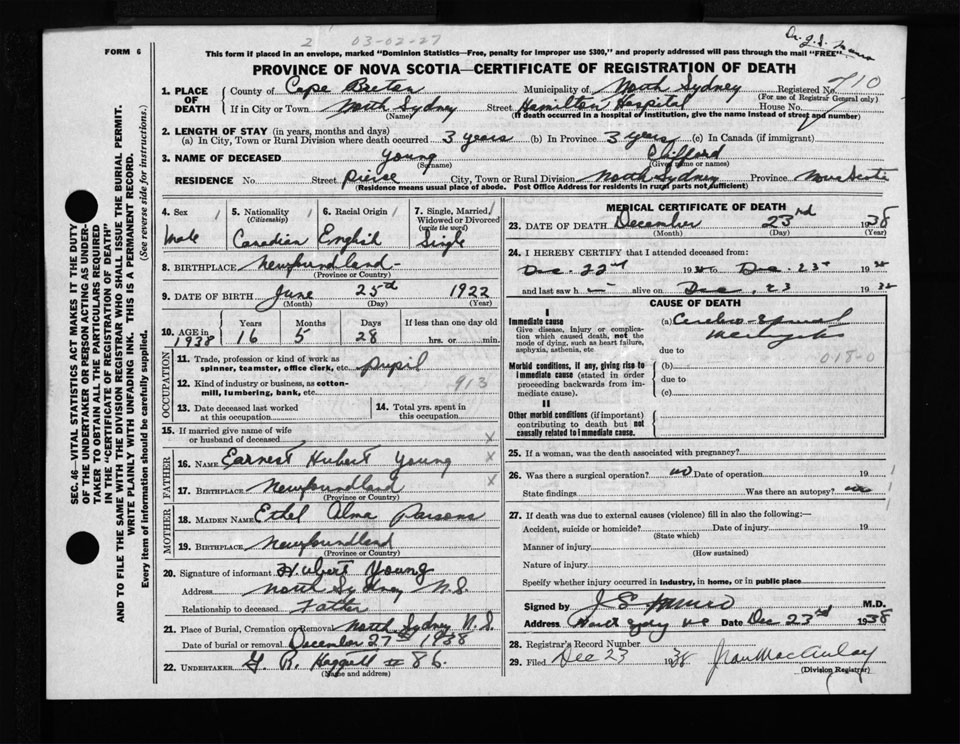 2 03-02-27
FORM 6
This form if placed in an envelope, marked "Dominion Statistics—Free, penalty for improper use $300," and properly addressed will pass through the mail "FREE"
Dr. J.S.
PROVINCE OF NOVA SCOTIA—CERTIFICATE OF REGISTRATION OF DEATH
1. PLACE OF DEATH
County of Cape Breton Municipality of North Sydney Registered No. 710
(For use of Registrar General only)
If in City or Town North Sydney Street Hamilton Hospital House No.
(Name) (If death occurred in a hospital or institution, give the name instead of street and number)
2. LENGTH OF STAY (in years, months and days)
(a) In City, Town or Rural Division where death occurred 3 years (b) In Province 3 years (c) In Canada (if immigrant)
3. NAME OF DECEASED Young Clifford
(Surname) (Given name or names)
RESIDENCE No Street Pierce City, Town or Rural Division North Sydney Province Nova Scotia
(Residence means usual place of abode. Post Office Address for residents in rural parts not sufficient)
4. Sex Male
5. Nationality (Citizenship) Canadian
6. Racial Origin English
7. Single, Married, Widowed or Divorced (write the word) Single
8. BIRTHPLACE Newfoundland
(Province or Country)
9. DATE OF BIRTH June 25th 1922
(Month) (Day) (Year)
10. AGE in 1938 Years 16 Months 5 Days 28 If less than one day old hrs. or min.
OCCUPATION
11. Trade, profession or kind of work as spinner, teamster, office clerk, etc. pupil
12. Kind of industry or business, as cotton-mill, lumbering, bank, etc. 913
13. Date deceased last worked at this occupation
14. Total yrs. spent in this occupation
15. If married give name of wife or husband of deceased
FATHER
16. NAME Earnest Hubert Young
17. BIRTHPLACE Newfoundland
(Province or Country)
MOTHER
18. MAIDEN NAME Ethel Alma Parsons
19. BIRTHPLACE Newfoundland
(Province or Country)
20. Signature of informant Hubert Young
Address North Sydney N.S.
Relationship to deceased Father
21. Place of Burial, Cremation or Removal North Sydney N.S.
Date of burial or removal December 27th 1938
22. UNDERTAKER # 86
(Name and address)
MEDICAL CERTIFICATE OF DEATH
23. DATE OF DEATH December 23rd 1938
(Month) (Day) (Year)
24. I HEREBY CERTIFY that I attended deceased from:
Dec. 22nd 1938 to Dec. 23rd 1938
and last saw h alive on Dec. 23 1938
CAUSE OF DEATH
I
Immediate cause
Give disease, injury or complication which caused death, not the mode of dying, such as heart failure, asphyxia, asthenia, etc
(a) Cerebro-Spinal
due to
018-0
Morbid conditions, if any, giving rise to immediate cause (stated in order proceeding backwards from immediate cause).
(b)
due to
(c)
II
Other morbid conditions (if important) contributing to death but not causally related to immediate cause.
25. If a woman, was the death associated with pregnancy?
26. Was there a surgical operation? no Date of operation 19
State findings Was there an autopsy? no
27. If death was due to external causes (violence) fill in also the following:—
Accident, suicide or homicide? Date of injury 19
(State which)
Manner of injury
(How sustained)
Nature of injury
Specify whether injury occurred in industry, in home, or in public place
Signed by M.D.
Address Date Dec 23rd 1938
28. Registrar's Record Number
29. Filed Dec 23 1938 MacAulay
(Division Registrar)
SEC. 46—VITAL STATISTICS ACT MAKES IT THE DUTY
OF THE UNDERTAKER OR PERSON ACTING AS UNDER-
TAKER TO OBTAIN ALL THE PARTICULARS REQUIRED
IN THE "CERTIFICATE OF REGISTRATION OF DEATH"
AND TO FILE THE SAME WITH THE DIVISION REGISTRAR WHO SHALL ISSUE THE BURIAL PERMIT.
WRITE PLAINLY WITH UNFADING INK. THIS IS A PERMANENT RECORD.
Every item of information should be carefully supplied. (See reverse side for instructions.)